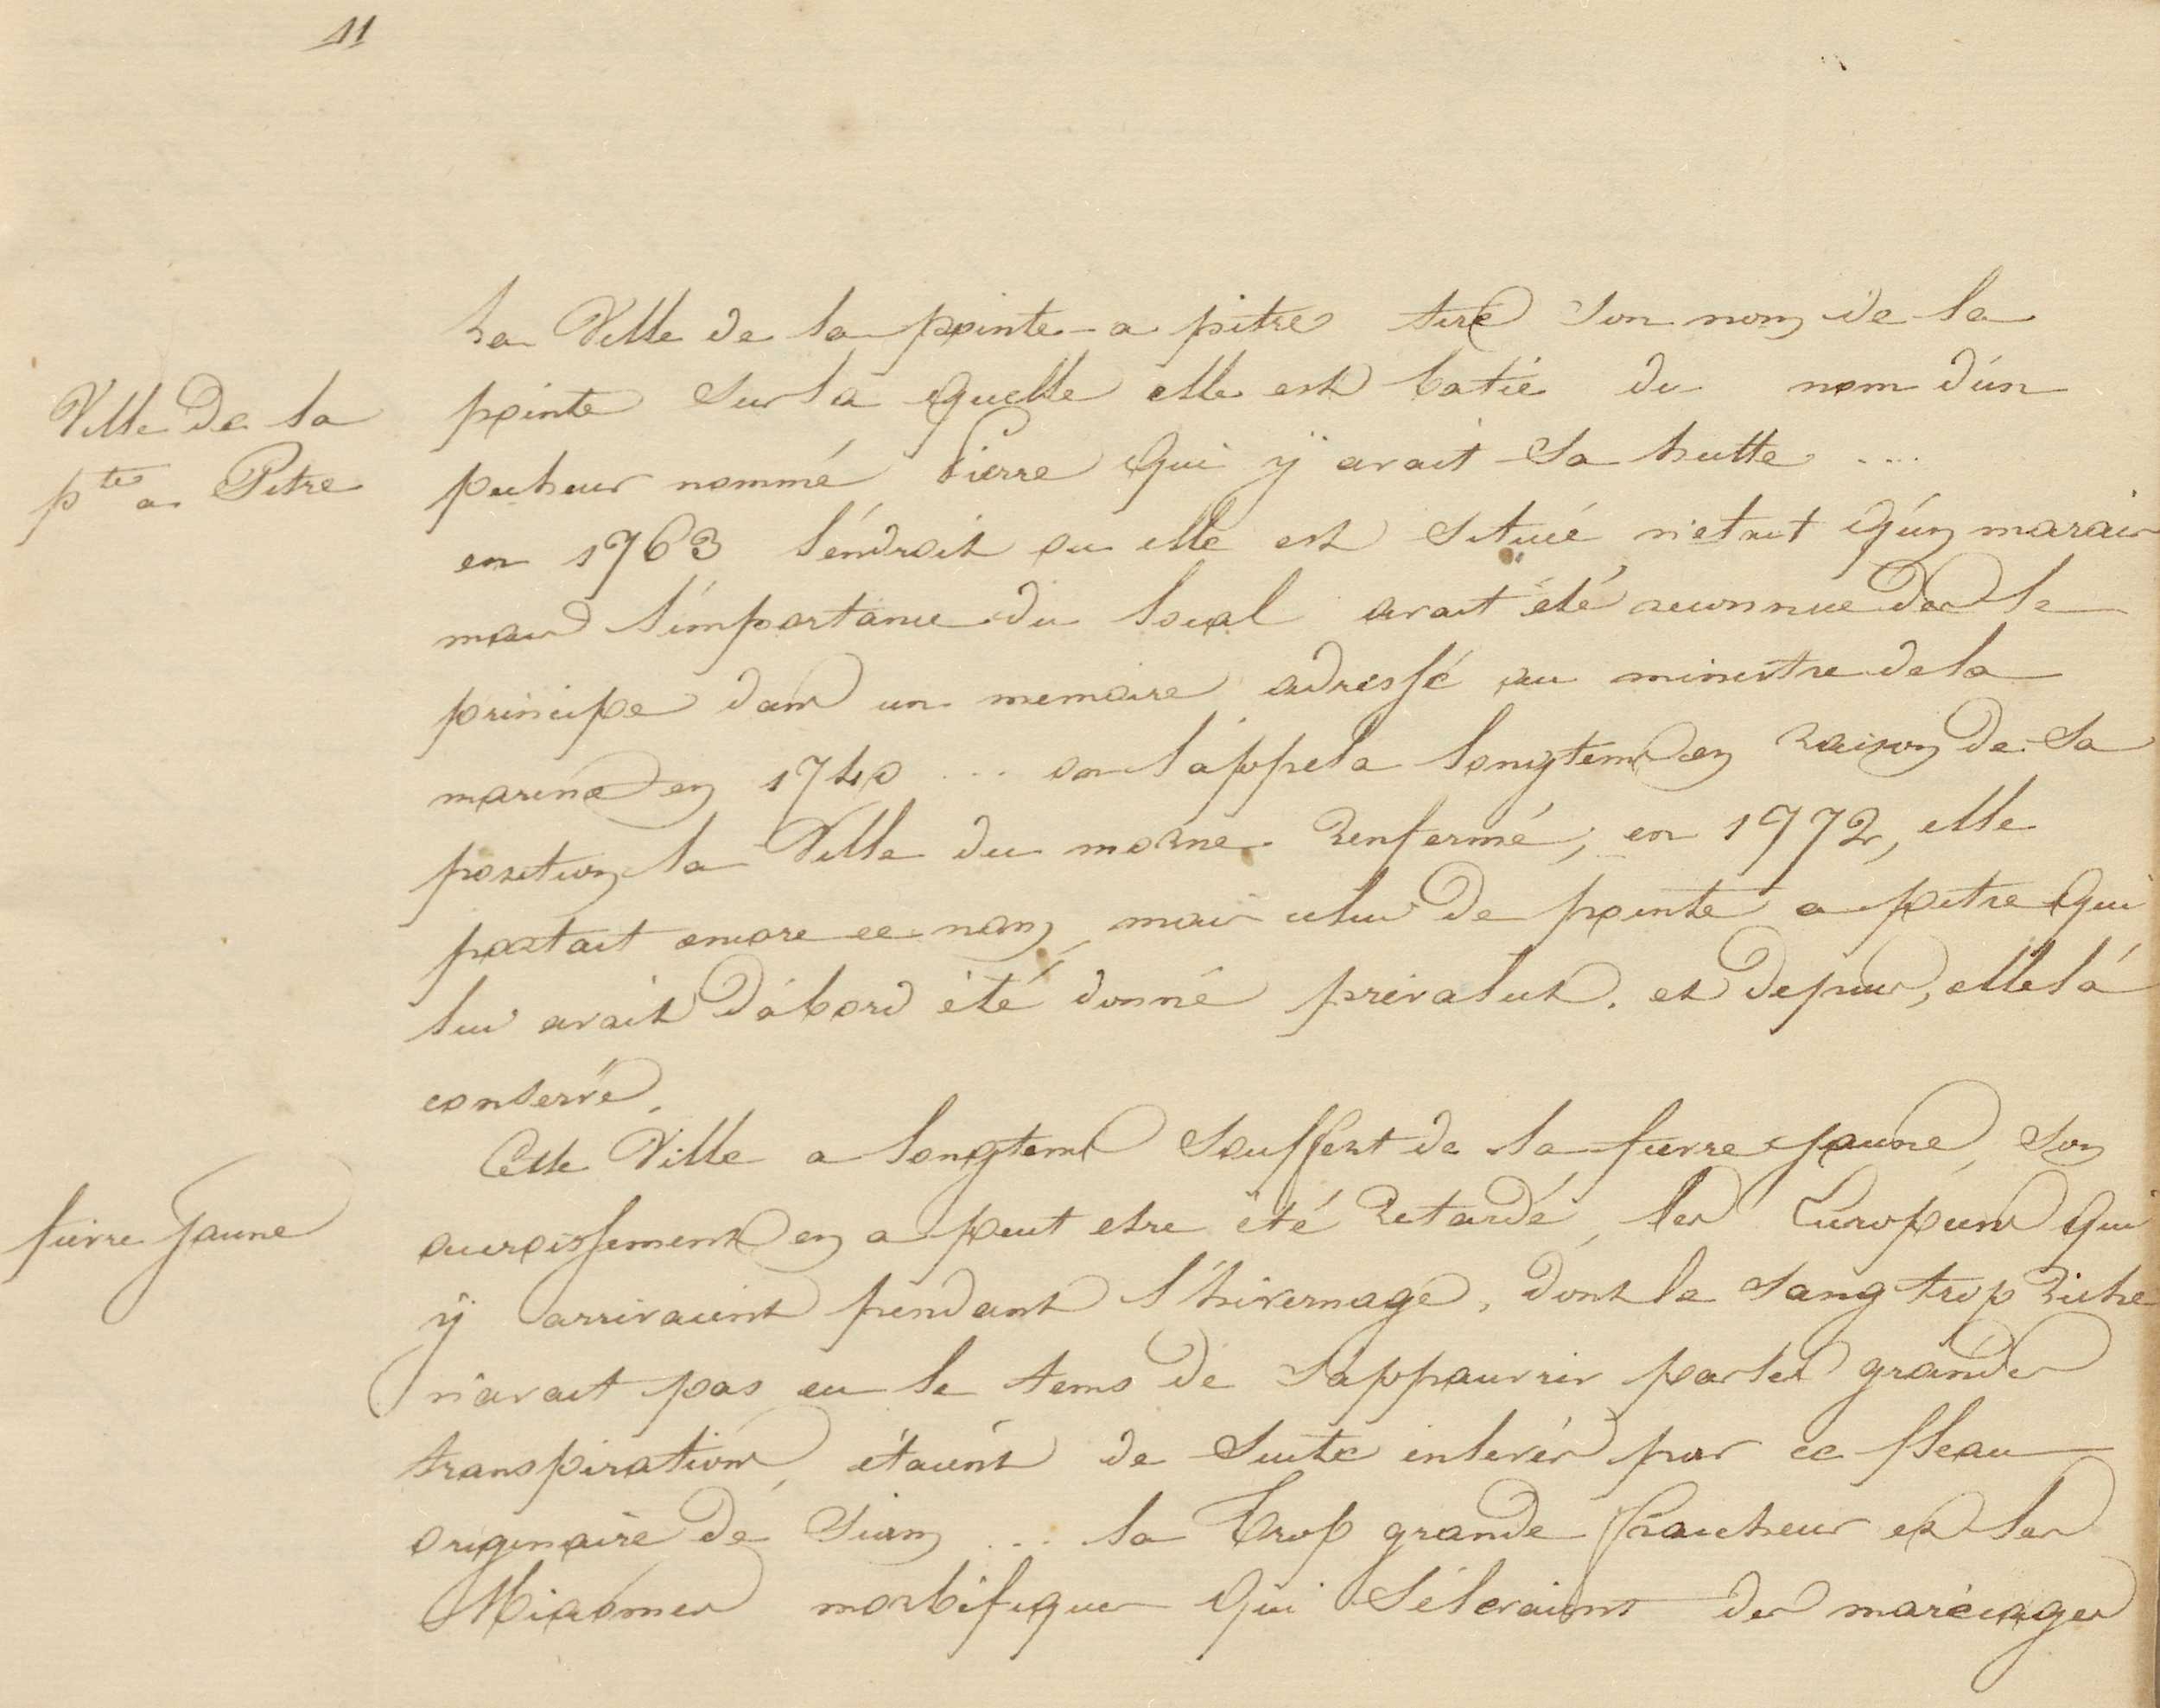 11
La Ville de la pointe-a pitre tire son nom de la
pointe sur la quelle elle est batie du nom d'ún
Ville De la
pte a Pitre
pecheur nommé Pierre qui ÿ avait sa hutte ....
en 1763 l'éndroit ou elle est située n'etait qu'ún marais
mais l'importance du local avait été reconnue des le
principe dans un memoire adressé au ministre de la
marine en 1740 ... on l'appela longtems en raison de sa
position la Ville du morne Renfermé, en 1772, elle
portait encore ce nom, mais celui De pointe a pitre qui
lui avait D'abord été donné prévalut. et Depuis, elle l'á
conservé.
Cette Ville a longtems souffert de la fievre jaune, son
fievre Jaune
accroissement en a peut etre été Retardé, les Européens qui
ÿ arrivaient pendant l'hivernage, dont le sang trop Riche
n'avait pas eu le tems De s'appauvrir par les grandes
transpirations, étaient de suite enlevés par ce fleau
originaire de Siam ... la trop grande fraicheur et les
Miasmes morbifiques qui s'élevaient des marécages